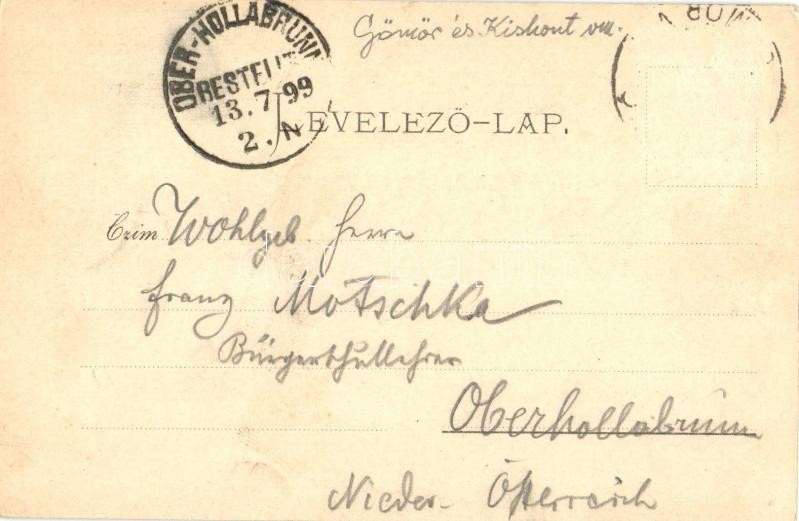 Gömör és Kishont vm.
OBER-HOLLABRUNN
BESTELLT
13.7.99
2.N
LEVELEZŐ-LAP.
Czim Wohlgeb. Herrn
Franz Motschka
Bürgerschullehrer
Oberhollabrunn
Nieder-Österreich